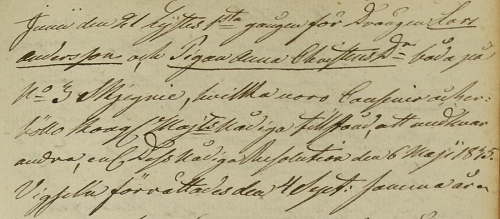 Junii den 21 Lystes 1sta gången för Drängen Lars
Andersson och Pigan Anna Christina Dr båda på
No 3 , hvilka voro Cousiner och er-
höllo Kongl. Majts Nådiga tillstånd att
andra, enl. Dess Nådiga Resolution den 6 Maji 1835.
Vigseln förrättades den 4 Sept. samma år